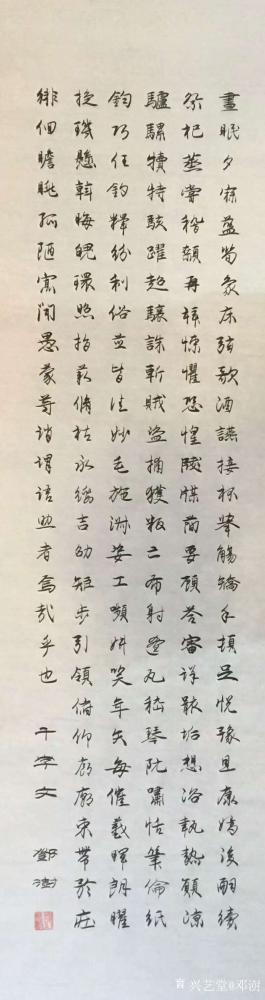 晝眠夕寐藍筍象床弦歌酒讌接杯舉觴矯手頓足悅豫且康嫡後嗣續
祭祀蒸嘗稽顙再拜悚懼恐惶牋牒簡要顧答審詳骸垢想浴執熱願涼
驢騾犢特駭躍超驤誅斬賊盜捕獲叛亡布射遼丸嵇琴阮嘯恬筆倫紙
鈞巧任釣釋紛利俗並皆佳妙毛施淑姿工顰妍笑年矢每催羲暉朗曜
旋璣懸斡晦魄環照指薪脩祜永綏吉劭矩步引領俯仰廊廟束帶矜莊
徘徊瞻眺孤陋寡聞愚蒙等誚謂語助者焉哉乎也 千字文 鄧澍
兴艺堂@邓澍